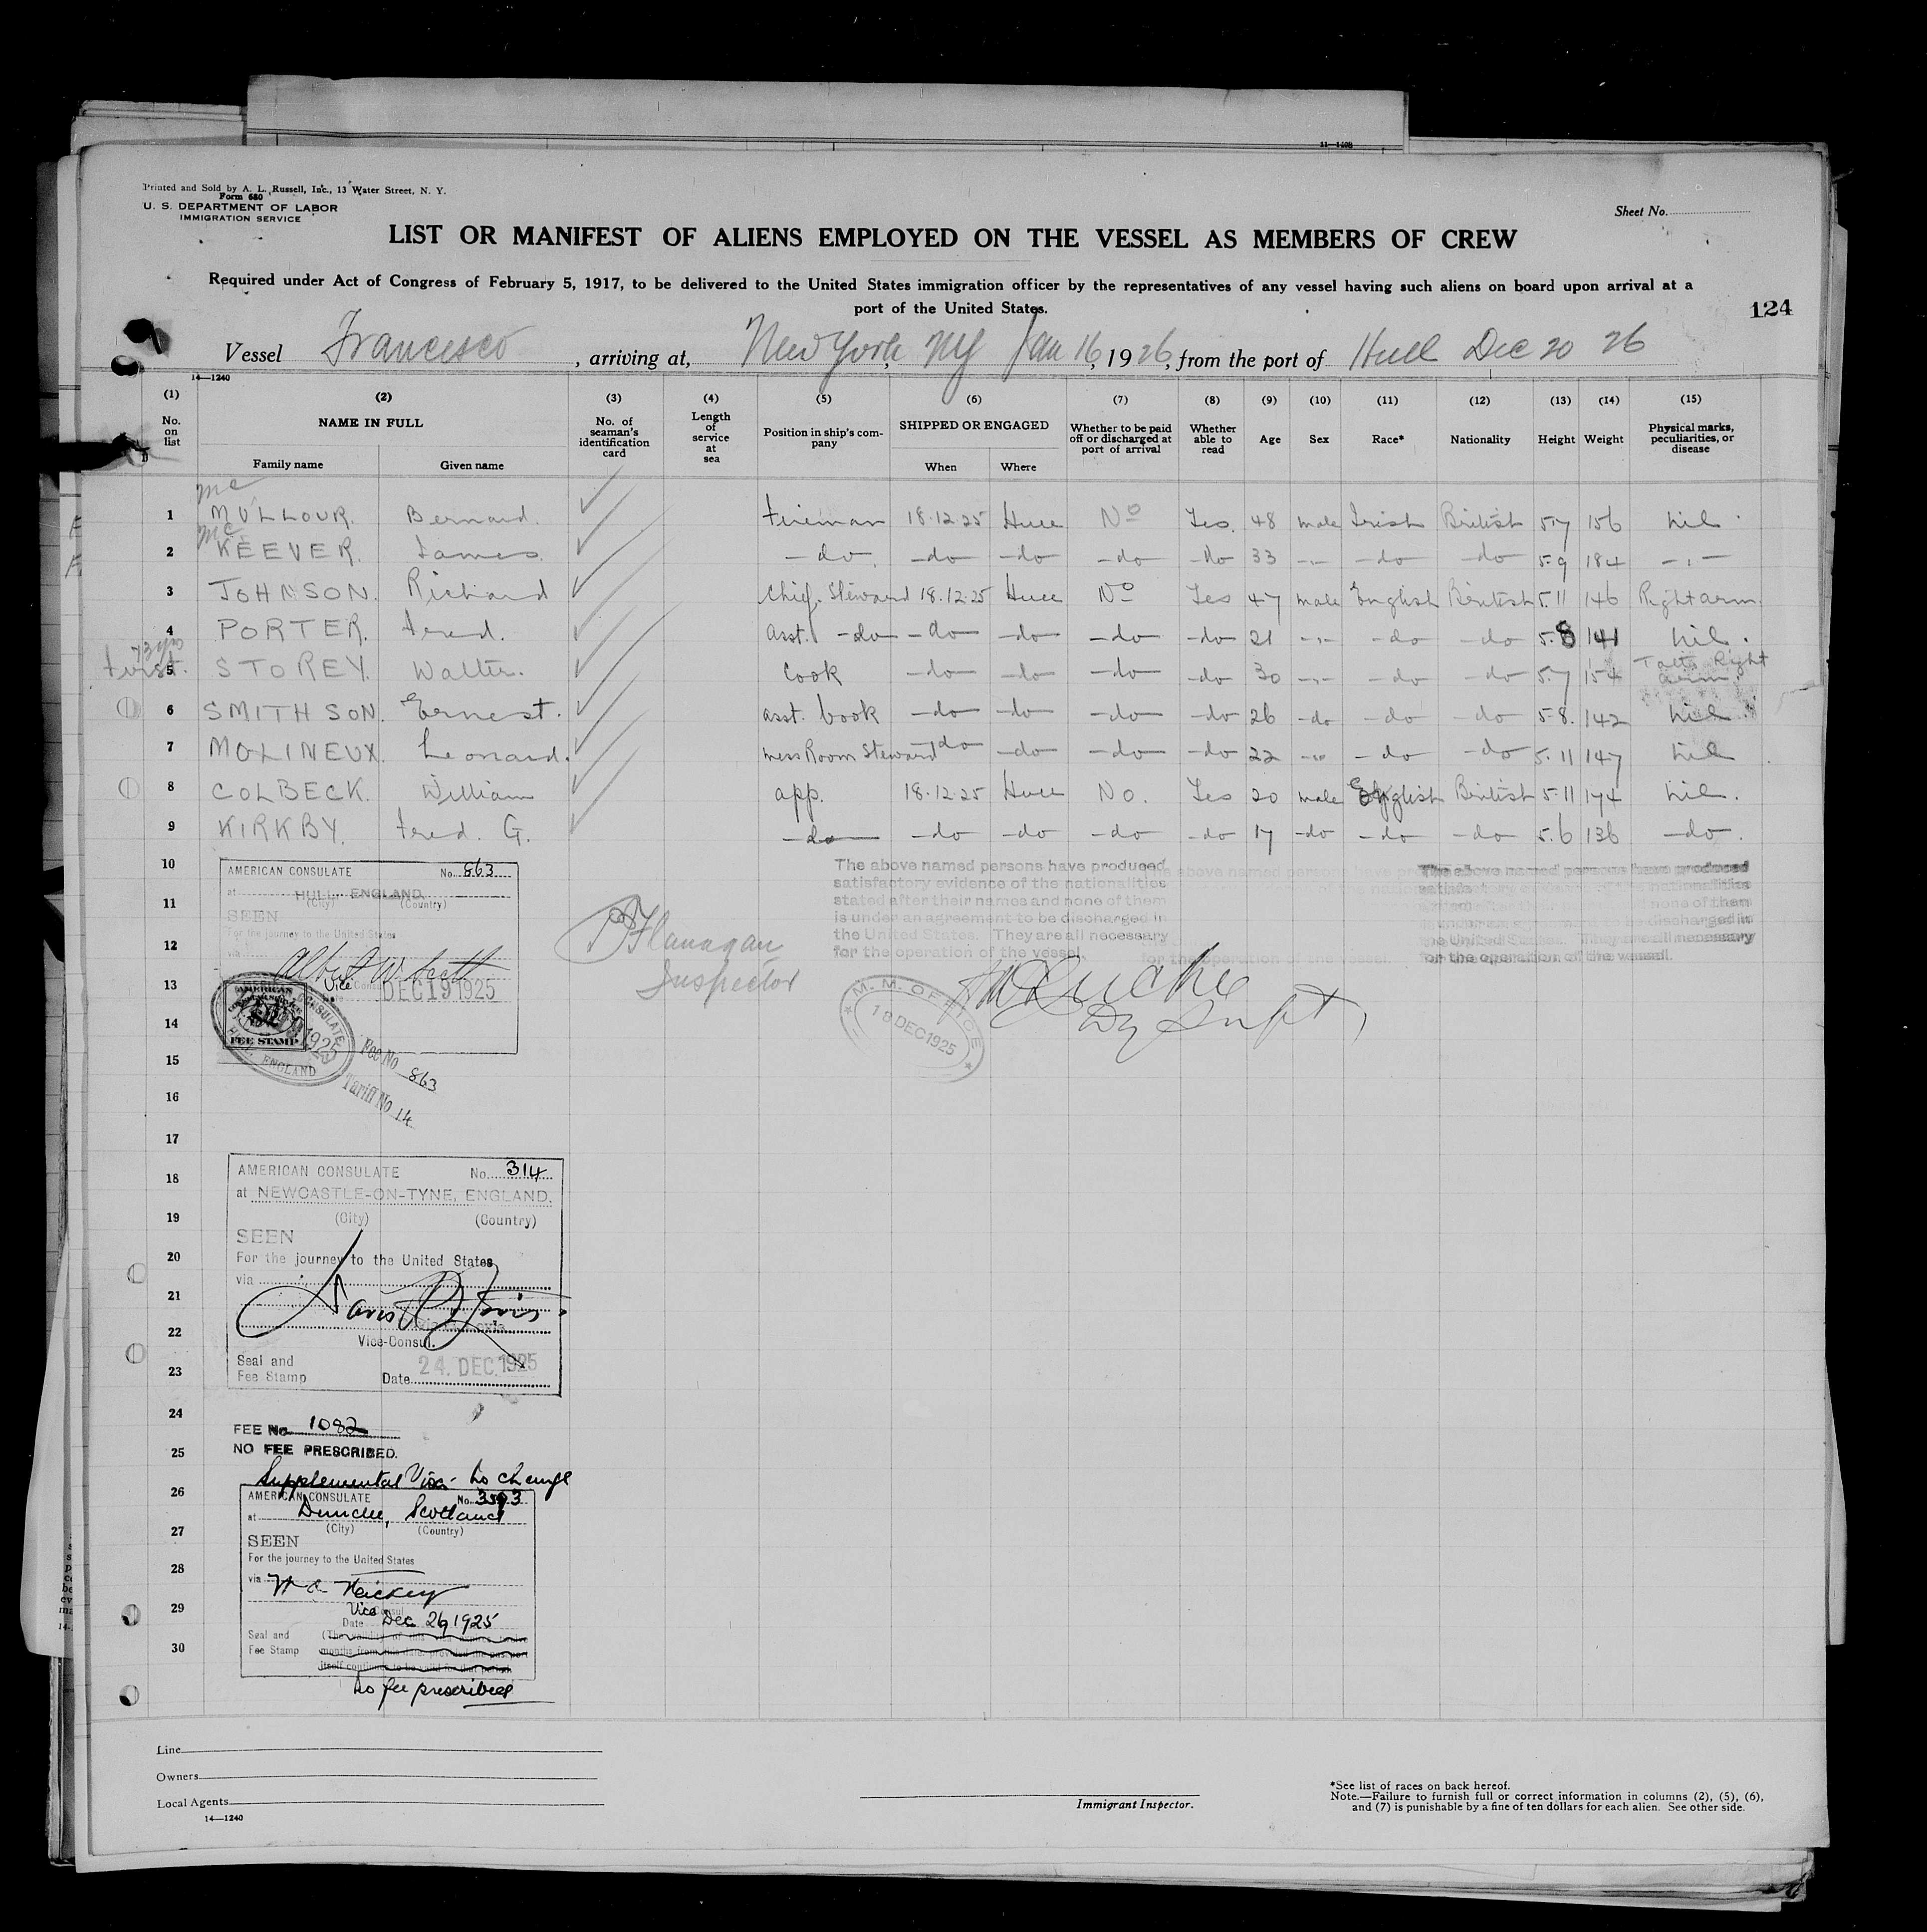 11—1408
Printed and Sold by A. L. Russell, Inc., 13 Water Street, N. Y.
Form 680
U. S. DEPARTMENT OF LABOR
IMMIGRATION SERVICE
Sheet No.
LIST OR MANIFEST OF ALIENS EMPLOYED ON THE VESSEL AS MEMBERS OF CREW
Required under Act of Congress of February 5, 1917, to be delivered to the United States immigration officer by the representatives of any vessel having such aliens on board upon arrival at a
port of the United States.
124
Vessel Francisco, arriving at, New York, NY Jan 16, 1926, from the port of Hull Dec 20 26
14—1240
(1) (2) (3) (4) (5) (6) (7) (8) (9) (10) (11) (12) (13) (14) (15)
No. on list NAME IN FULL No. of seaman's identification card Length of service at sea Position in ship's company SHIPPED OR ENGAGED Whether to be paid off or discharged at port of arrival Whether able to read Age Sex Race* Nationality Height Weight Physical marks, peculiarities, or disease
Family name Given name When Where
Mc
1 MULLOUR. Bernard. Fireman 18.12.25 Hull No Yes. 48 male Irish British 5.7 156 Nil.
Mc
2 KEEVER. James. —do. —do —do —do —do 33 —"— —do —do 5.9 184 —"—
3 JOHNSON. Richard Chief. Steward 18.12.25 Hull No Yes 47 male English British 5.11 146 Right arm.
4 PORTER. Fred. Asst. —do —do —do —do —do 21 —"— —do —do 5.8 141 Nil.
first. 5 STOREY. Walter. Cook —do —do —do —do 30 —"— —do —do 5.7 154 Tatt. Right arm.
6 SMITHSON. Ernest. Asst. Cook —do —do —do —do 26 —do —do —do 5.8. 142 Nil.
7 MOLINEUX. Leonard. Mess Room Steward —do —do —do —do 22 —"— —do —do 5.11 147 Nil
8 COLBECK. William app. 18.12.25 Hull No. Yes 20 male English British 5.11 174 Nil.
9 KIRKBY. Fred. G. —do —do —do —do —do 17 —do —do —do 5.6 136 —do.
10
11
12
13
14
15
16
17
18
19
20
21
22
23
24
25
26
27
28
29
30
AMERICAN CONSULATE No. 863
at HULL ENGLAND.
(City) (Country)
SEEN
For the journey to the United States
via
Albert W. Scott
Vice Consul
DEC 19 1925
AMERICAN
FEE STAMP
ENGLAND
Fee No 863
Tariff No 14
Flanagan
Inspector
The above named persons have produced
satisfactory evidence of the nationalities
stated after their names and none of them
is under an agreement to be discharged in
the United States. They are all necessary
for the operation of the vessel.
The above named persons have produced
the United States. They are all necessary
for the operation of the vessel.
M. M. OFFICE
18 DEC 1925
Dy Supt
AMERICAN CONSULATE No. 314
at NEWCASTLE-ON-TYNE, ENGLAND.
(City) (Country)
SEEN
For the journey to the United States
via
Vice-Consul.
Seal and
Fee Stamp Date 24. DEC. 1925
FEE No. 1082
NO FEE PRESCRIBED.
Supplemental Visa - No change
AMERICAN CONSULATE No. 3593
at Dundee, Scotland
(City) (Country)
SEEN
For the journey to the United States
via
Vice Consul
Date Dec. 26, 1925
Seal and (The validity of this visa expires twelve
Fee Stamp months from this date, provided the passport
itself continues to be valid for that period
No fee prescribed
Line
Owners
Local Agents
14—1240
Immigrant Inspector.
*See list of races on back hereof.
Note.—Failure to furnish full or correct information in columns (2), (5), (6),
and (7) is punishable by a fine of ten dollars for each alien. See other side.